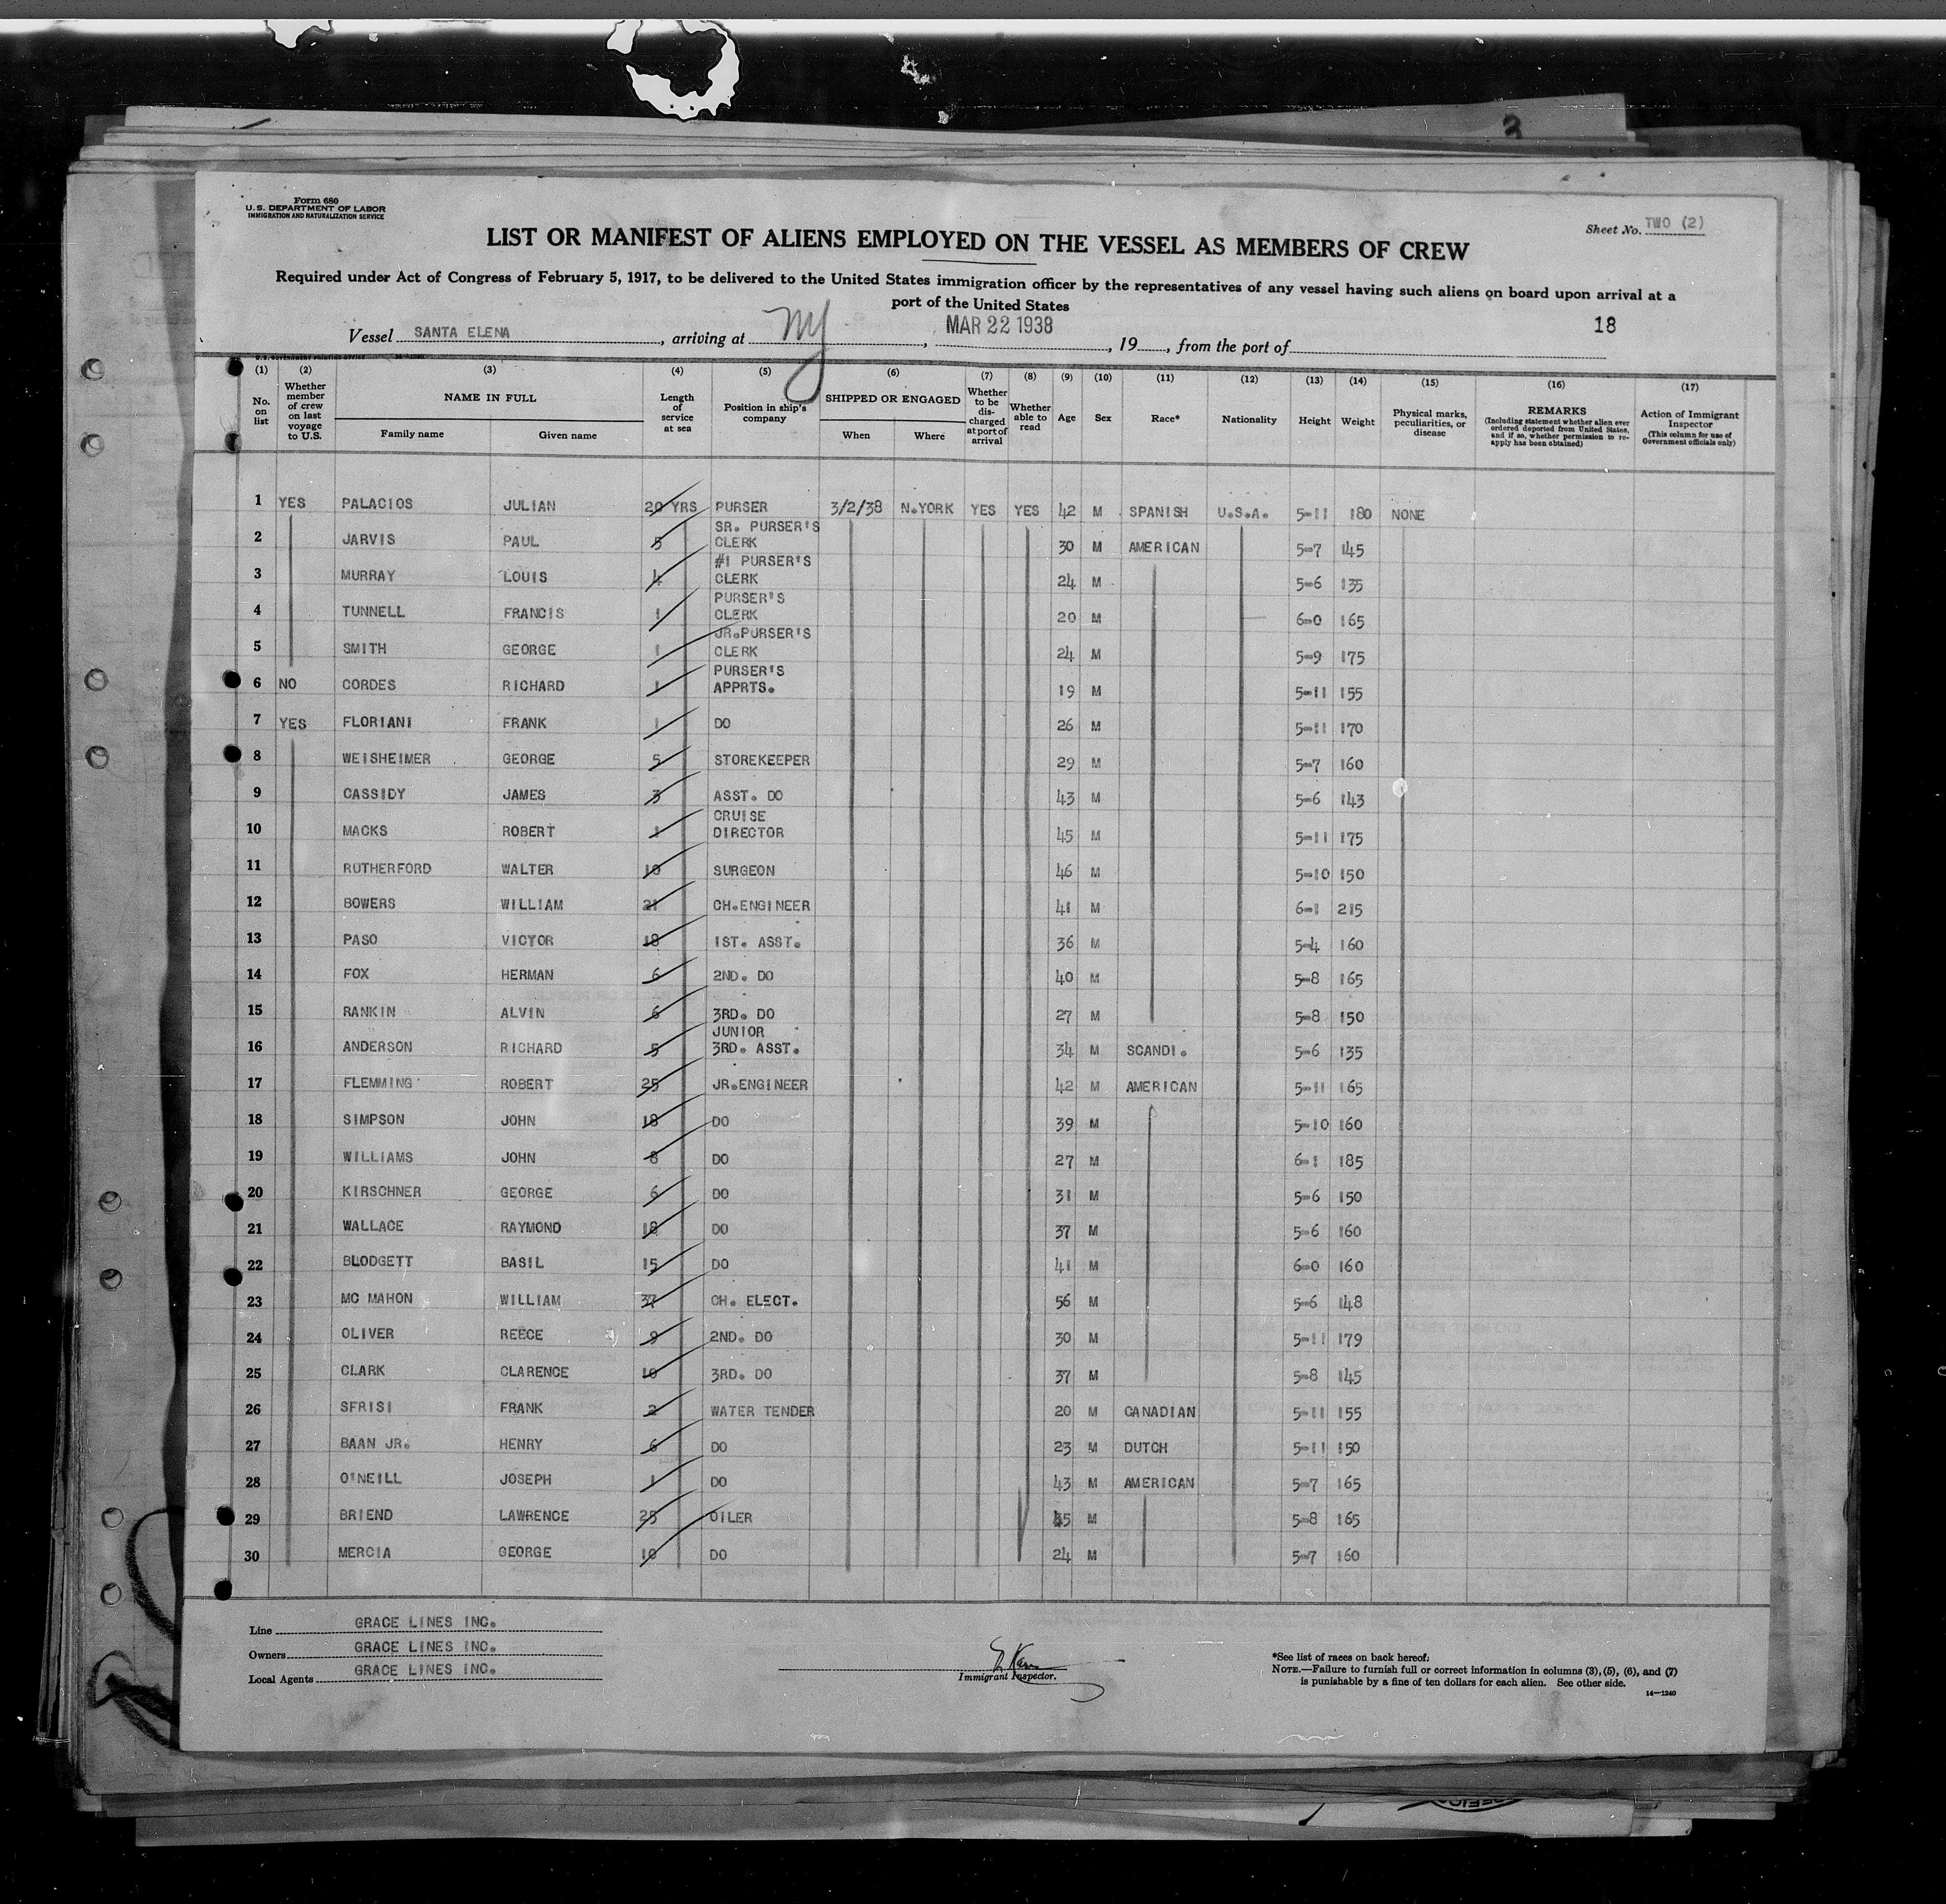 Form 680
U.S. DEPARTMENT OF LABOR
IMMIGRATION AND NATURALIZATION SERVICE
Sheet No. TWO (2)
LIST OR MANIFEST OF ALIENS EMPLOYED ON THE VESSEL AS MEMBERS OF CREW
Required under Act of Congress of February 5, 1917, to be delivered to the United States immigration officer by the representatives of any vessel having such aliens on board upon arrival at a
port of the United States
18
Vessel SANTA ELENA, arriving at NY, MAR 22 1938, 19, from the port of
(1) (2) (3) (4) (5) (6) (7) (8) (9) (10) (11) (12) (13) (14) (15) (16) (17)
No. on list
Whether member of crew on last voyage to U.S.
NAME IN FULL
Family name Given name
Length of service at sea
Position in ship's company
SHIPPED OR ENGAGED
When Where
Whether to be discharged at port of arrival
Whether able to read
Age Sex Race* Nationality Height Weight
Physical marks, peculiarities, or disease
REMARKS
(Including statement whether alien ever ordered deported from United States, and if so, whether permission to reapply has been obtained)
Action of Immigrant Inspector
(This column for use of Government officials only)
1 YES PALACIOS JULIAN 20 YRS PURSER 3/2/38 N.YORK YES YES 42 M SPANISH U.S.A. 5-11 180 NONE
2 JARVIS PAUL 5 SR. PURSER'S CLERK 30 M AMERICAN 5-7 145
3 MURRAY LOUIS 4 #1 PURSER'S CLERK 24 M 5-6 135
4 TUNNELL FRANCIS 1 PURSER'S CLERK 20 M 6-0 165
5 SMITH GEORGE 1 JR.PURSER'S CLERK 24 M 5-9 175
6 NO CORDES RICHARD 1 PURSER'S APPRTS. 19 M 5-11 155
7 YES FLORIANI FRANK 1 DO 26 M 5-11 170
8 WEISHEIMER GEORGE 5 STOREKEEPER 29 M 5-7 160
9 CASSIDY JAMES 3 ASST. DO 43 M 5-6 143
10 MACKS ROBERT 1 CRUISE DIRECTOR 45 M 5-11 175
11 RUTHERFORD WALTER 10 SURGEON 46 M 5-10 150
12 BOWERS WILLIAM 21 CH.ENGINEER 41 M 6-1 215
13 PASO VICTOR 18 1ST. ASST. 36 M 5-4 160
14 FOX HERMAN 6 2ND. DO 40 M 5-8 165
15 RANKIN ALVIN 6 3RD. DO 27 M 5-8 150
16 ANDERSON RICHARD 5 JUNIOR 3RD. ASST. 34 M SCANDI. 5-6 135
17 FLEMMING ROBERT 25 JR.ENGINEER 42 M AMERICAN 5-11 165
18 SIMPSON JOHN 18 DO 39 M 5-10 160
19 WILLIAMS JOHN 8 DO 27 M 6-1 185
20 KIRSCHNER GEORGE 6 DO 31 M 5-6 150
21 WALLACE RAYMOND 18 DO 37 M 5-6 160
22 BLODGETT BASIL 15 DO 41 M 6-0 160
23 MC MAHON WILLIAM 37 CH. ELECT. 56 M 5-6 148
24 OLIVER REECE 9 2ND. DO 30 M 5-11 179
25 CLARK CLARENCE 10 3RD. DO 37 M 5-8 145
26 SFRISI FRANK 2 WATER TENDER 20 M CANADIAN 5-11 155
27 BAAN JR. HENRY 6 DO 23 M DUTCH 5-11 150
28 O'NEILL JOSEPH 1 DO 43 M AMERICAN 5-7 165
29 BRIEND LAWRENCE 25 OILER 45 M 5-8 165
30 MERCIA GEORGE 10 DO 24 M 5-7 160
Line GRACE LINES INC.
Owners GRACE LINES INC.
Local Agents GRACE LINES INC.
Immigrant Inspector.
*See list of races on back hereof.
NOTE.—Failure to furnish full or correct information in columns (3), (5), (6), and (7)
is punishable by a fine of ten dollars for each alien. See other side.
14—1240